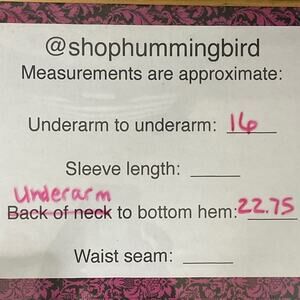 @shophummingbird
Measurements are approximate:
Underarm to underarm: 16
Sleeve length: ____
Underarm
Back of neck to bottom hem: 22.75
Waist seam: ____